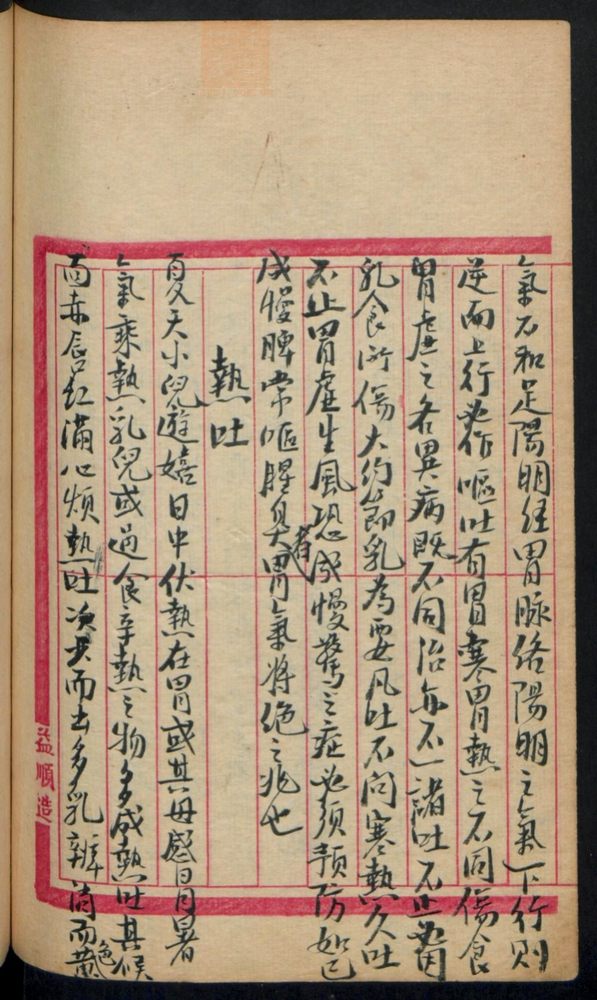 氣不和足陽明経胃脉絡陽明之氣下行則
逆而上行必作嘔吐有胃寒胃熱之不同傷食
胃虚之各異病既不同治亦不一諸吐不止必因
乳食所傷大約節乳為要凡吐不问寒熱久吐
不止胃虚生風恐成慢驚之症必須預防如已
成慢脾常嘔腥臭者胃氣將绝之兆也
熱吐
夏天小兒遊嬉日中伏熱在胃或其母感冒暑
氣乘熱乳兒或過食辛熱之物多成熱吐其候
面赤唇红滿心煩熱吐次少而出多乳辦消而色黄
益順造